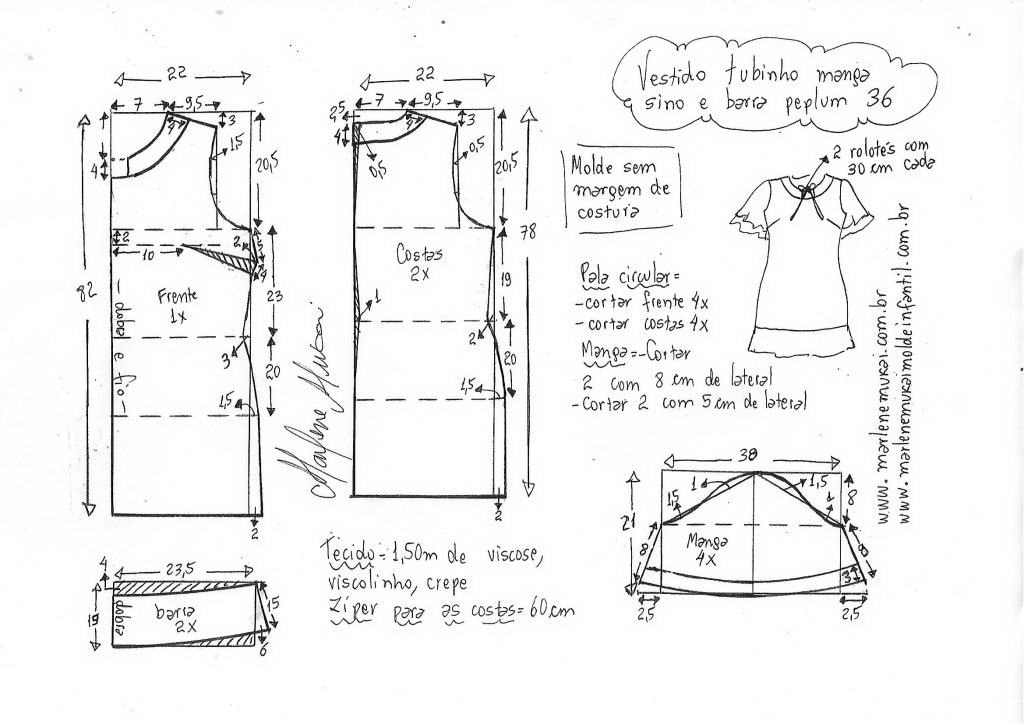 Vestido tubinho manga
sino e barra peplum 36
2 rolotés com
30 cm cada
Molde sem
margem de
costura
Pala circular=
-cortar frente 4x
-cortar costas 4x
Manga=-Cortar
2 com 8 cm de lateral
-Cortar 2 com 5 cm de lateral
www.marlenemukai.com.br
www.marlenemukaimoldeinfantil.com.br
22
7
9,5
3
4
1,5
20,5
2
10
2
4
82
Frente
1x
23
3
20
1,5
2
- dobra e fio -
Marlene Mukai
22
2,5
7
9,5
3
4
0,5
0,5
20,5
78
Costas
2x
19
1
2
20
1,5
2
4
23,5
19
dobra
barra
2x
15
6
Tecido=1,50m de viscose,
viscolinho, crepe
Zíper para as costas=60cm
38
1,5
1
1,5
1
8
21
8
Manga
4x
8
3
2,5
2,5